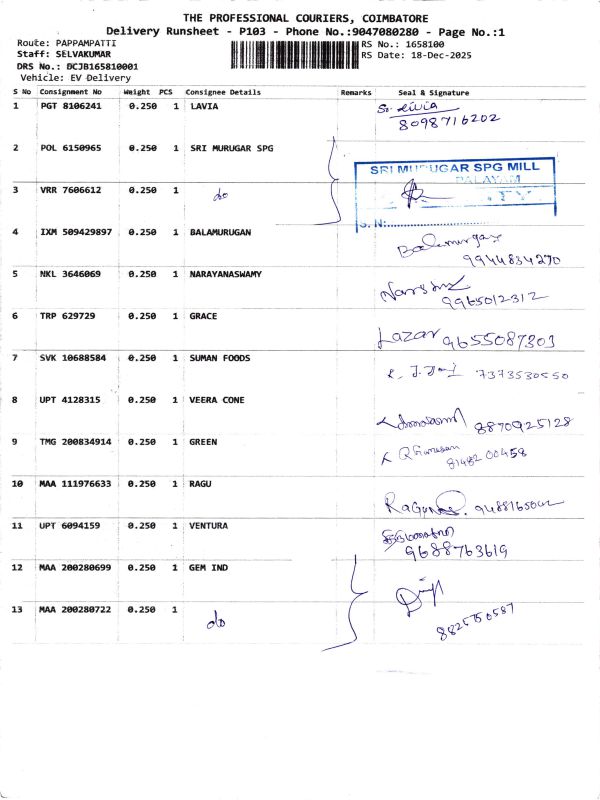 THE PROFESSIONAL COURIERS, COIMBATORE
Delivery Runsheet - P103 - Phone No.:9047080280 - Page No.:1
Route: PAPPAMPATTI RS No.: 1658100
Staff: SELVAKUMAR RS Date: 18-Dec-2025
DRS No.: DCJB165810001
Vehicle: EV Delivery
S No Consignment No Weight PCS Consignee Details Remarks Seal & Signature
1 PGT 8106241 0.250 1 LAVIA
8098716202
2 POL 6150965 0.250 1 SRI MURUGAR SPG
SRI MURUGAR SPG MILL
3 VRR 7606612 0.250 1 do
S. N:
4 IXM 509429897 0.250 1 BALAMURUGAN Balamurugan
9944834270
5 NKL 3646069 0.250 1 NARAYANASWAMY
9965012312
6 TRP 629729 0.250 1 GRACE
Lazar 9655087303
7 SVK 10688584 0.250 1 SUMAN FOODS
7373530550
8 UPT 4128315 0.250 1 VEERA CONE
8870925128
9 TMG 200834914 0.250 1 GREEN
8148200458
10 MAA 111976633 0.250 1 RAGU
9488165042
11 UPT 6094159 0.250 1 VENTURA
9688763619
12 MAA 200280699 0.250 1 GEM IND
13 MAA 200280722 0.250 1 do
8825750587